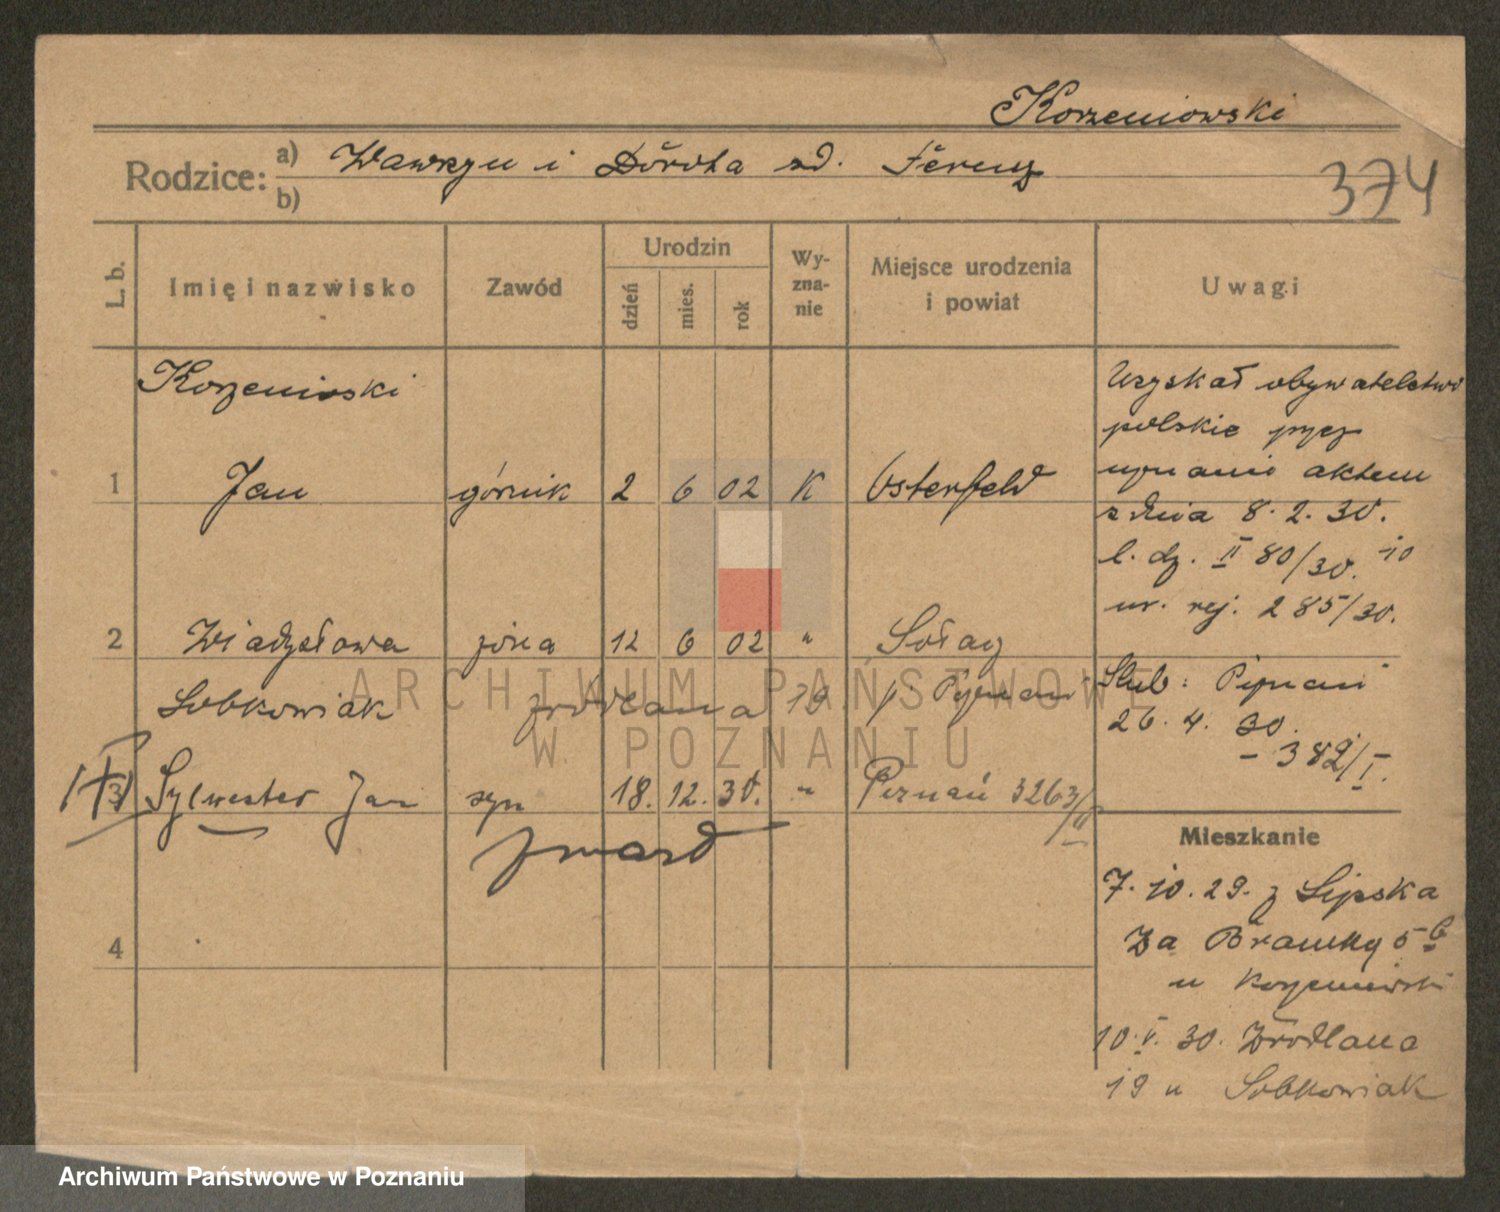 Korzeniowski
Rodzice:
a) Wawrzyn i Dorota zd. Ferenz
b)
374
L. b.
Imię i nazwisko
Zawód
Urodzin
dzień
mies.
rok
Wy-
zna-
nie
Miejsce urodzenia
i powiat
Uwagi
Korzeniowski
1 Jan górnik 2 6 02 K Osterfeld
2 Władysława żona 12 6 02 " Sołacz
Sobkowiak Źródlana 19 p Poznań
3 Sylwester Jan syn 18. 12. 30. " Poznań 3263/II
zmarł
4
Uzyskał obywatelstwo
polskie przez
uznanie aktem
z dnia 8. 2. 30.
l. dz. II 80/30. 10
nr. rej. 285/30.
Ślub: Poznań
26. 4. 30.
- 382/I.
Mieszkanie
7. 10. 29. z Lipska
Za Bramką 5 b
u Korzeniewski
10. V. 30. Źródlana
19 u Sobkowiak
ARCHIWUM PAŃSTWOWE
W POZNANIU
Archiwum Państwowe w Poznaniu